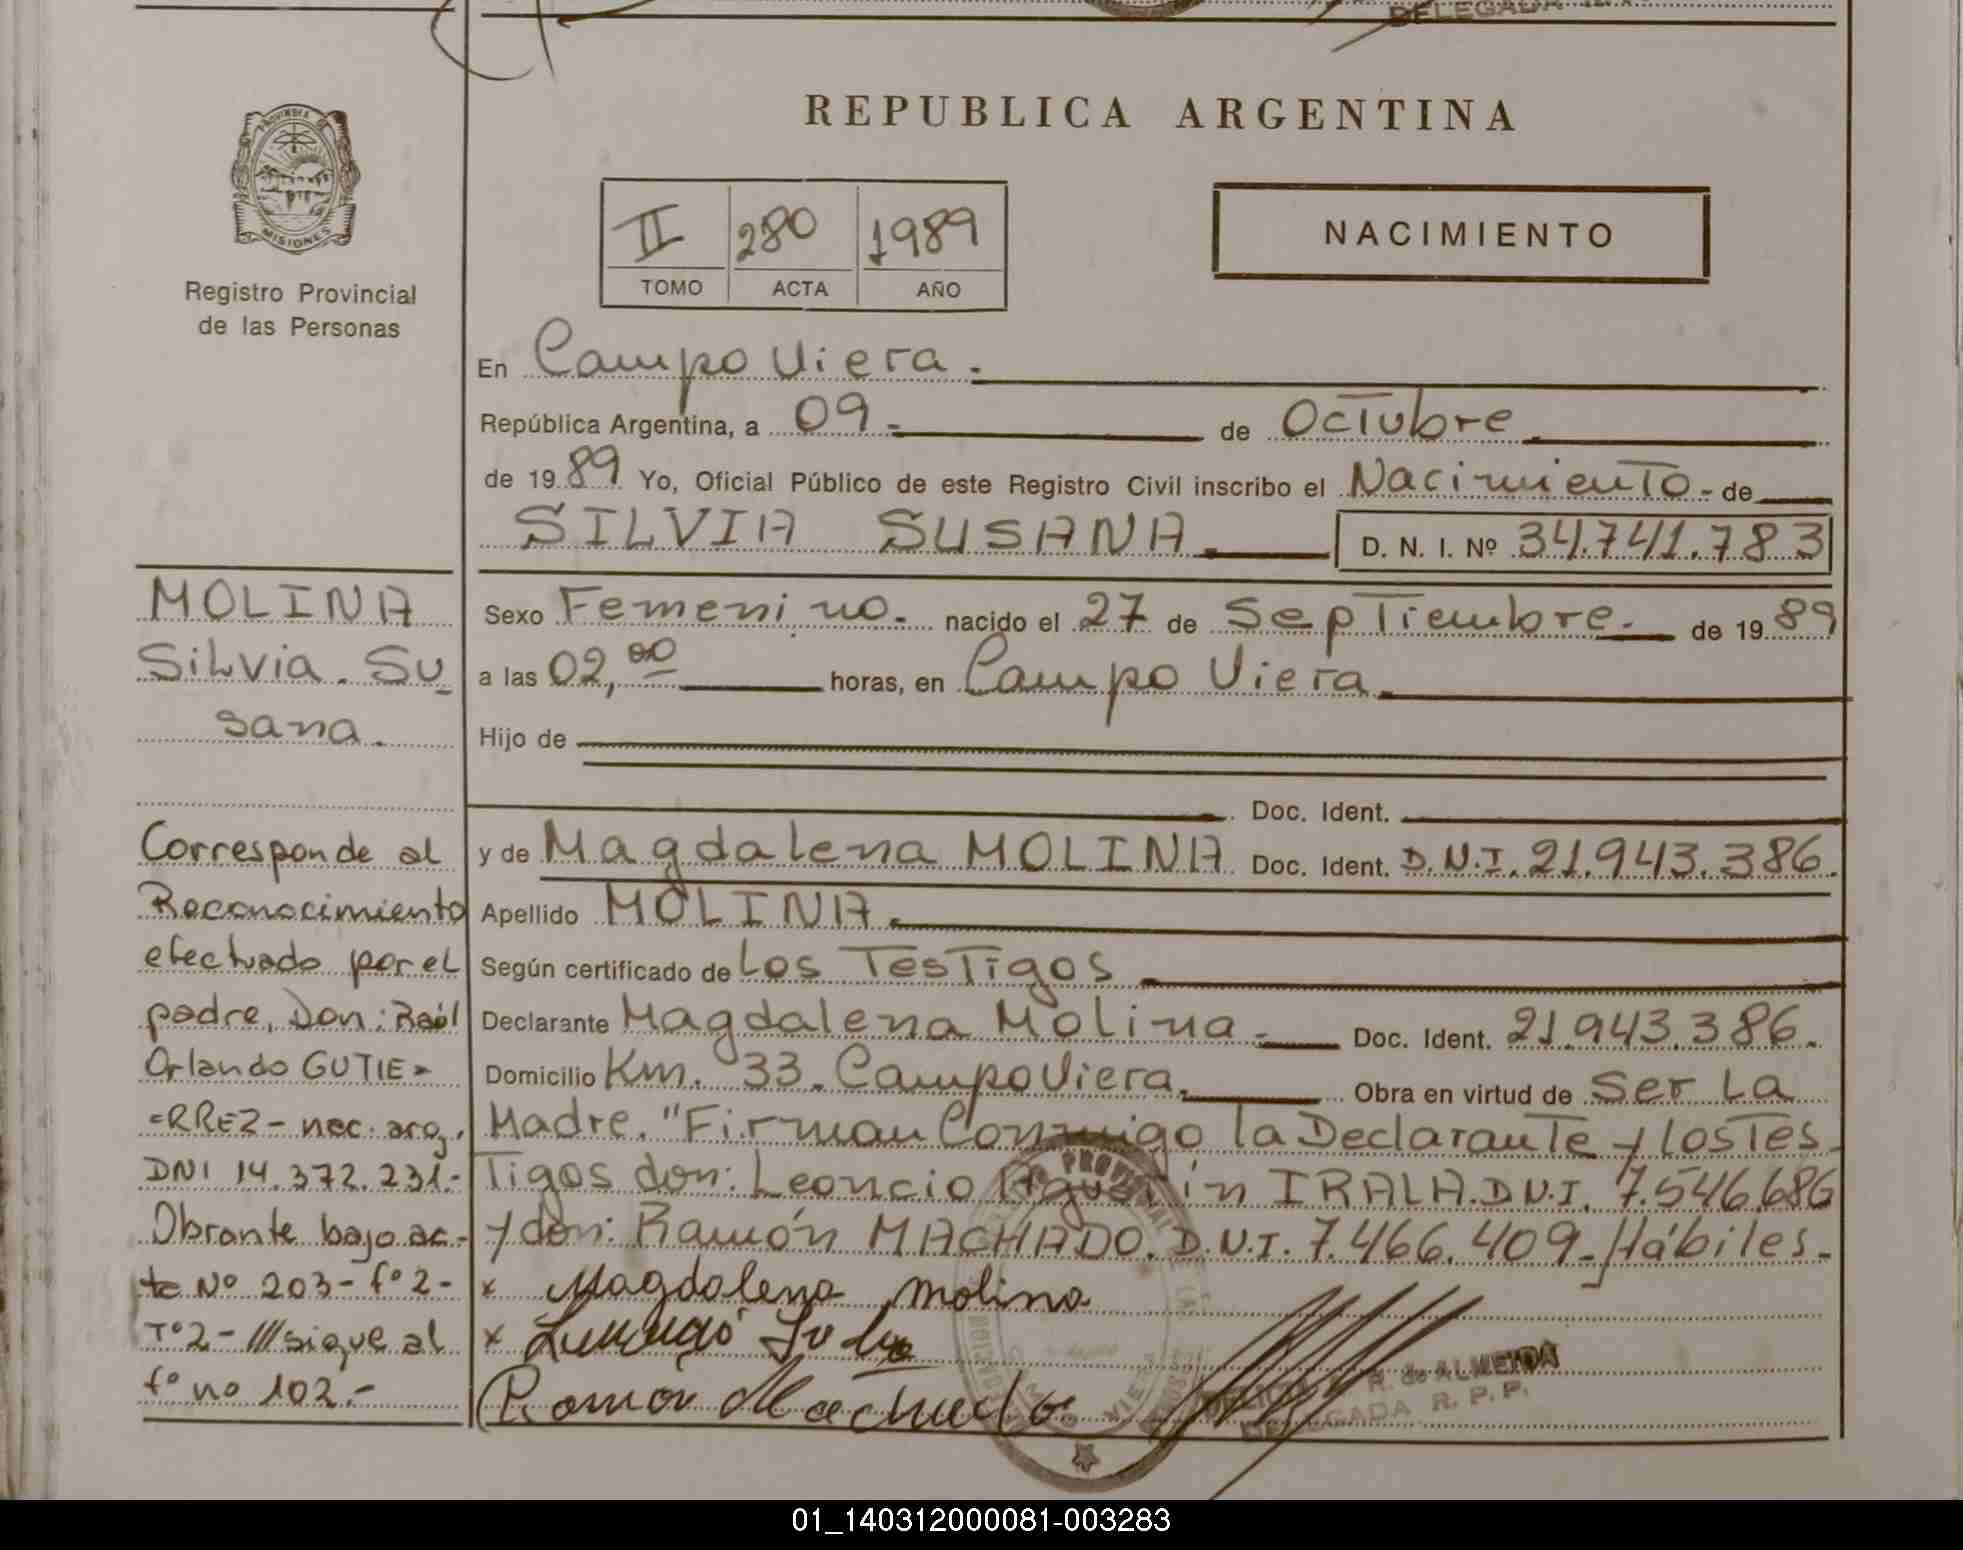 DELEGADA R.P.P.
PROVINCIA DE
MISIONES
Registro Provincial
de las Personas
REPUBLICA ARGENTINA
II 280 1989
TOMO ACTA AÑO
NACIMIENTO
En Campo Viera.
República Argentina, a 09.- de Octubre
de 1989 Yo, Oficial Público de este Registro Civil inscribo el Nacimiento - de
SILVIA SUSANA D. N. I. Nº 34.741.783
Sexo Femenino.- nacido el 27 de Septiembre.- de 1989
a las 02,00 horas, en Campo Viera
Hijo de
Doc. Ident.
y de Magdalena MOLINA Doc. Ident. D.N.I. 21.943.386.
Apellido MOLINA.
Según certificado de Los Testigos
Declarante Magdalena Molina.- Doc. Ident. 21.943.386.
Domicilio Km. 33. Campo Viera. Obra en virtud de Ser La
Madre. "Firman Conmigo la Declarante y los Tes-
Tigos don: Leoncio Agustín IRALA. D.N.I. 7.546.686
y don: Ramón MACHADO. D.N.I. 7.466.409- Hábiles.-
x Magdalena Molina
x
Ramón Machado
R. de ALMEIDA
DELEGADA R. P. P.
MOLINA
Silvia. Su_
sana.
Corresponde al
Reconocimiento
efectuado por el
padre, Don: Raúl
Orlando GUTIE=
=RREZ- nac. arg.
DNI 14.372.231.-
Obrante bajo ac-
ta Nº 203- fº 2-
Tº 2- /// sigue al
fº nº 102.-
01_140312000081-003283